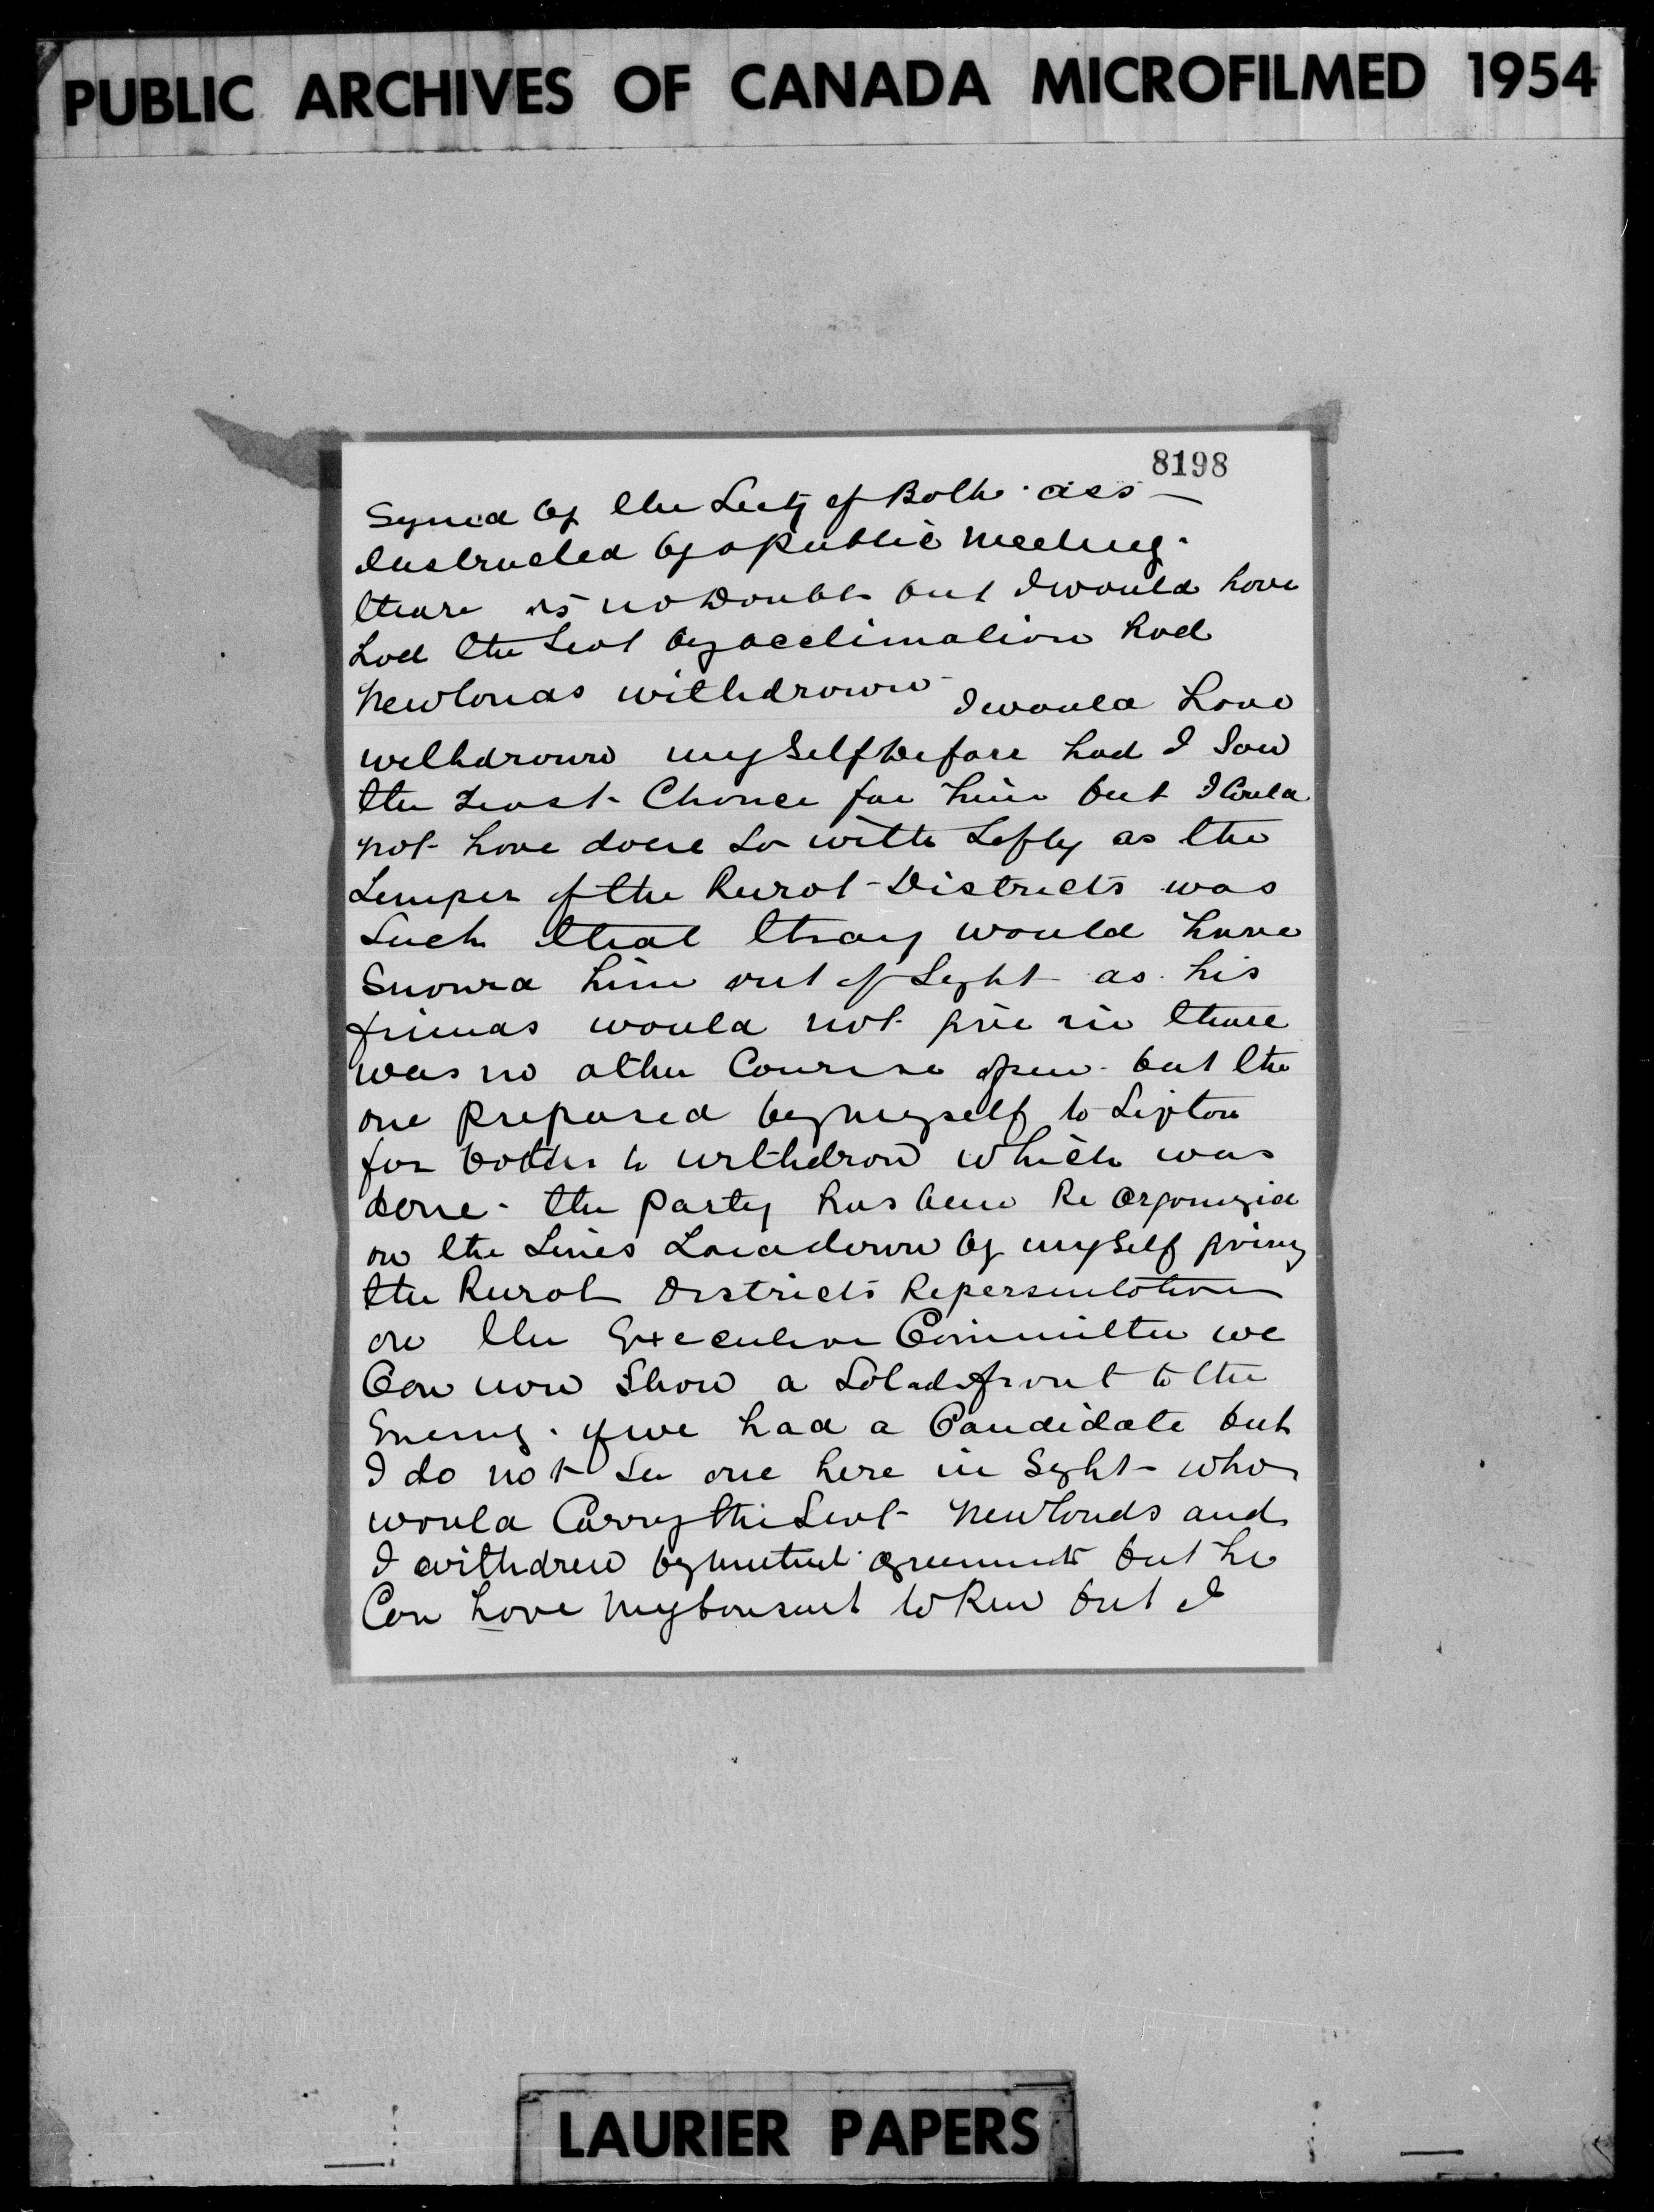 PUBLIC ARCHIVES OF CANADA MICROFILMED 1954
8198
Syned by the Secty of Both ass
Instructed by a Public meeting.
theare is no Doubt but I would have
had the Seat by acclimation had
Newlands withdrawn I would have
withdrawn my Self before had I Saw
the Least Chance for him but I Could
not have done So with Safty as the
Temper of the Rural Districts was
Such that thay would have
Snowed him out of Syht as his
friends would not give in theare
was no other Course open but the
one Preposed by myself to Lipton
for both to withdraw which was
done. the Party has been Re Organized
on the Lines Laiddown by my Self giving
the Rural Districts Repersentation
on the Executive Committee we
Can now Show a Solad front to the
Enemy. if we had a Candidate but
I do not See one here in Syht who
would Carry the Seat Newlands and
I withdrew by mutual agreement but he
Can have my Consent to Run but I
LAURIER PAPERS